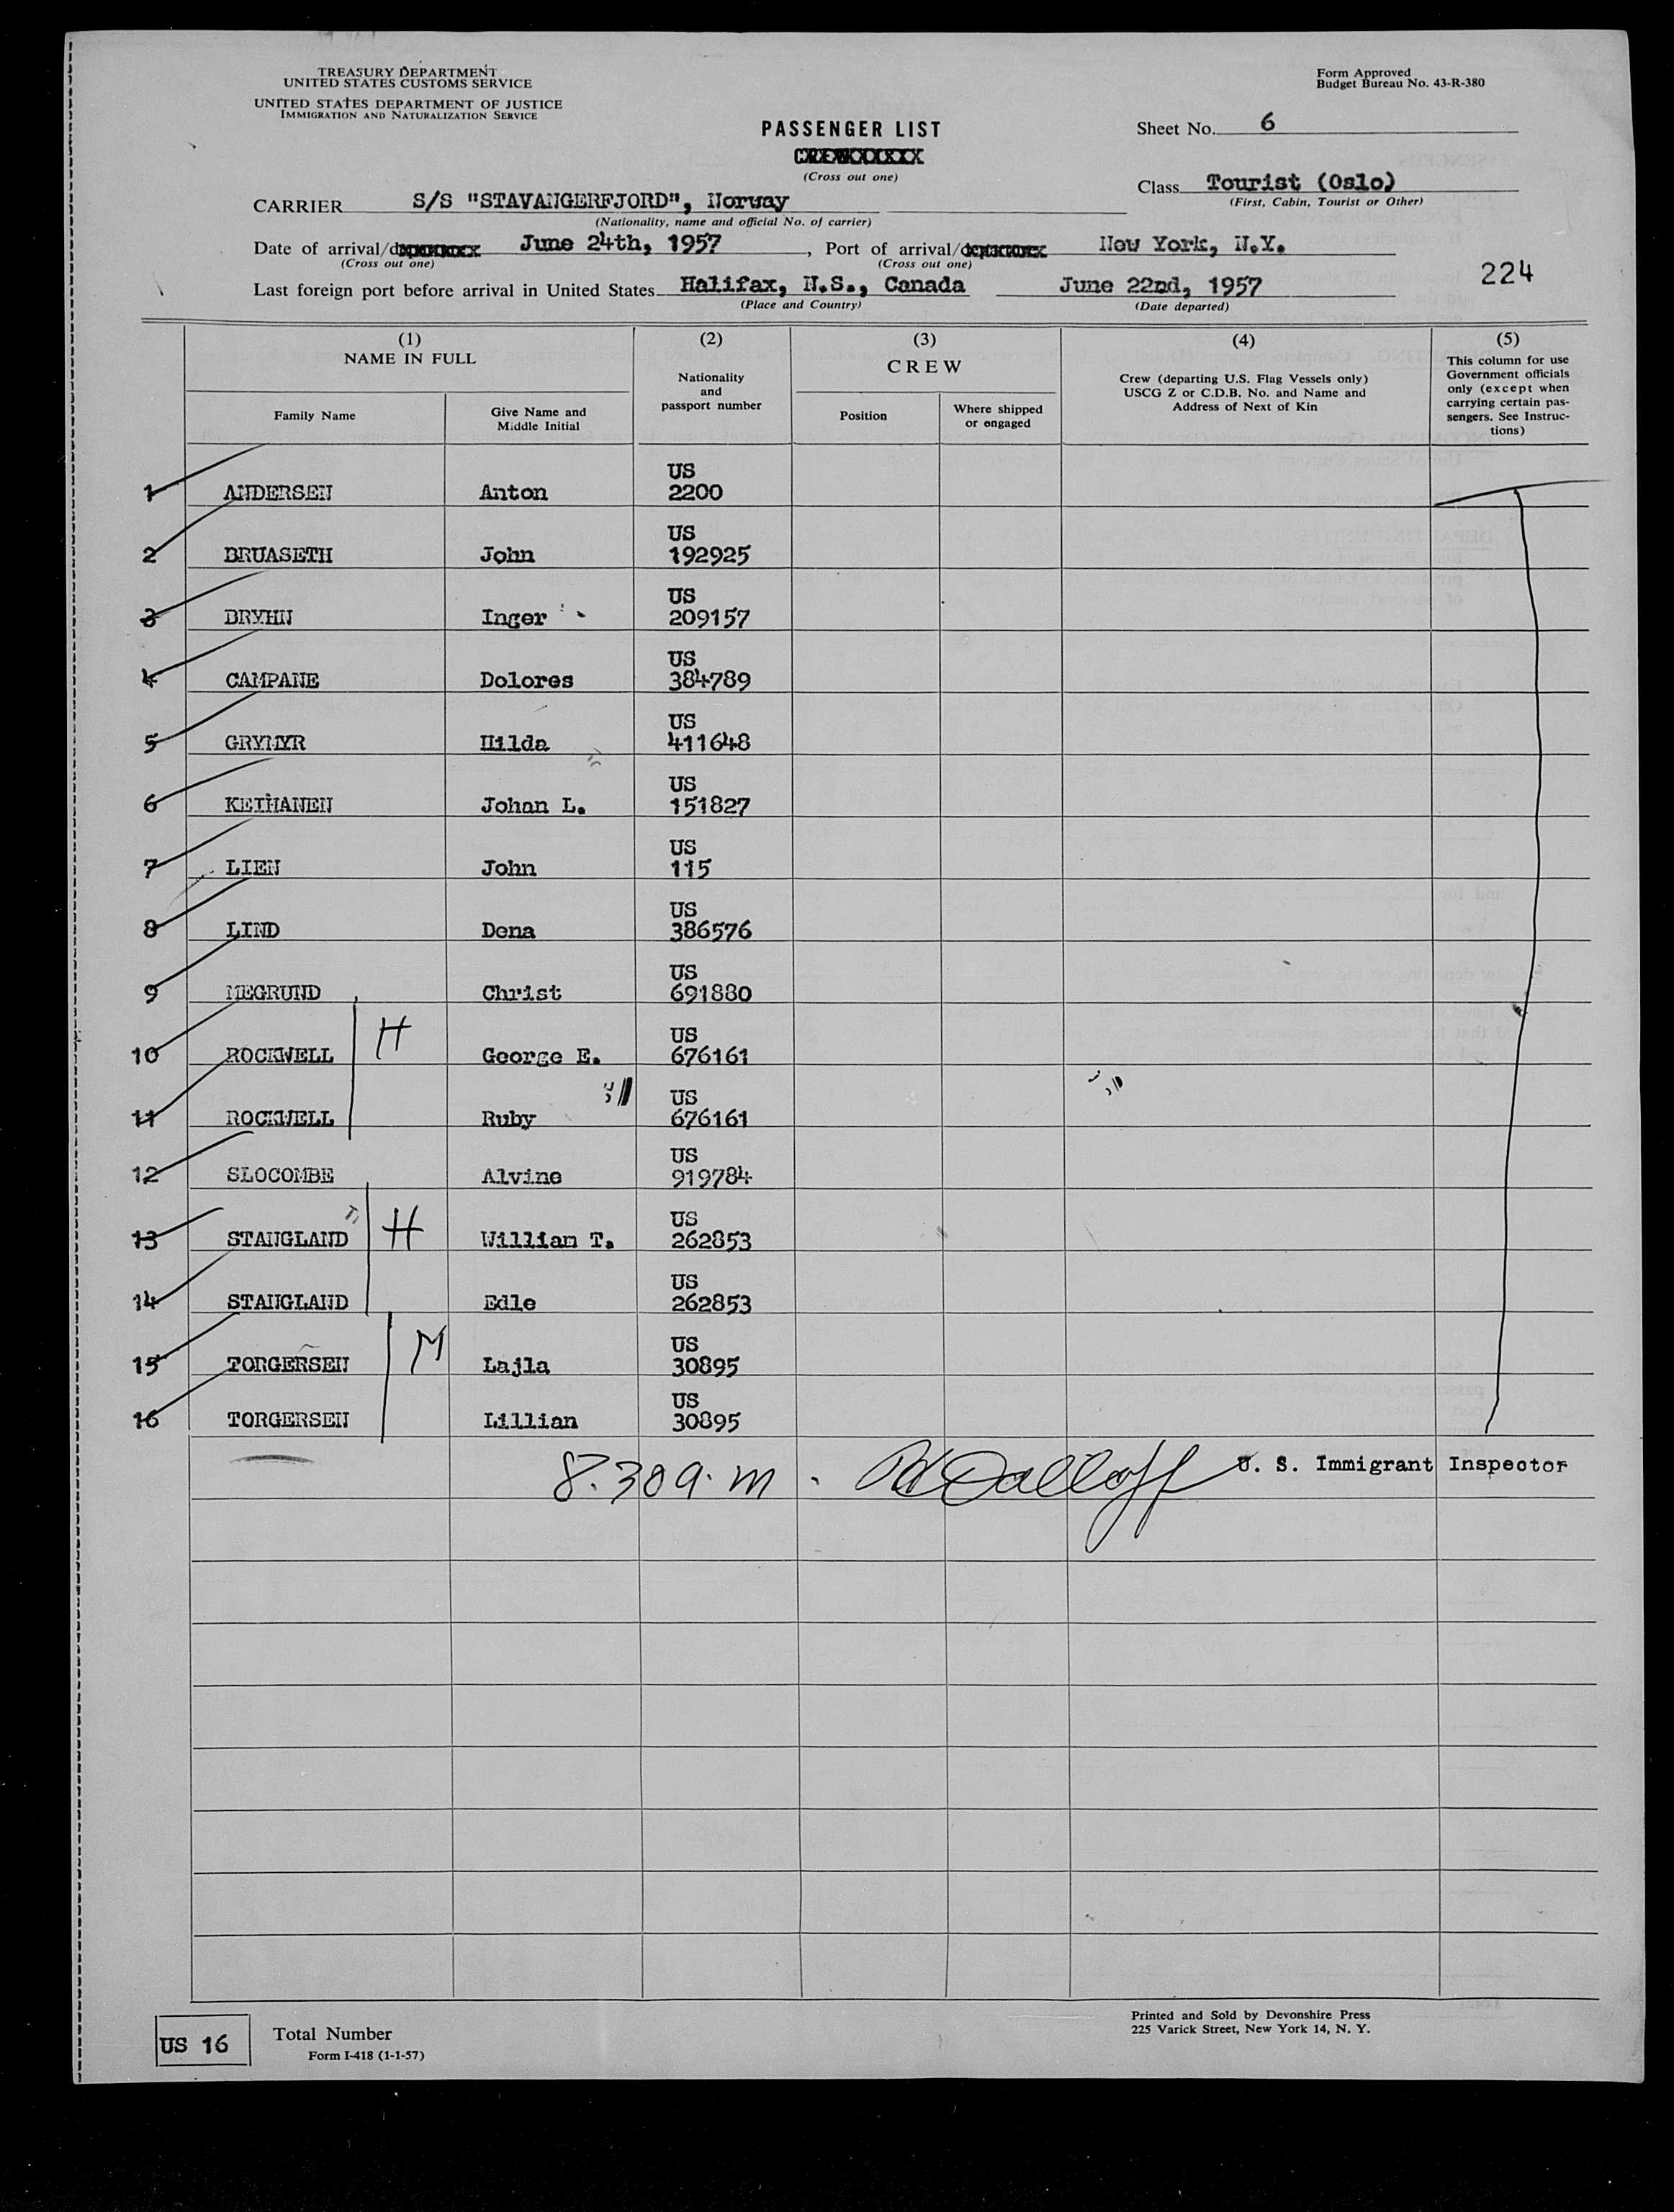 TREASURY DEPARTMENT
UNITED STATES CUSTOMS SERVICE
UNITED STATES DEPARTMENT OF JUSTICE
IMMIGRATION AND NATURALIZATION SERVICE
Form Approved
Budget Bureau No. 43-R-380
PASSENGER LIST
(Cross out one)
Sheet No. 6
Class Tourist (Oslo)
(First, Cabin, Tourist or Other)
CARRIER S/S "STAVANGERFJORD", Norway
(Nationality, name and official No. of carrier)
Date of arrival/ June 24th, 1957, Port of arrival/ New York, N.Y.
(Cross out one) (Cross out one)
224
Last foreign port before arrival in United States Halifax, N.S., Canada June 22nd, 1957
(Place and Country) (Date departed)
(1) (2) (3) (4) (5)
NAME IN FULL
Family Name
Give Name and Middle Initial
Nationality and passport number
CREW
Position
Where shipped or engaged
Crew (departing U.S. Flag Vessels only)
USCG Z or C.D.B. No. and Name and
Address of Next of Kin
This column for use
Government officials
only (except when
carrying certain pas-
sengers. See Instruc-
tions)
1 ANDERSEN Anton US 2200
2 BRUASETH John US 192925
3 BRYHN Inger US 209157
4 CAMPANE Dolores US 384789
5 GRYMYR Hilda US 411648
6 KETHANEN Johan L. US 151827
7 LIEN John US 115
8 LIND Dena US 386576
9 MEGRUND Christ US 691880
10 ROCKWELL H George E. US 676161
11 ROCKWELL Ruby US 676161
12 SLOCOMBE Alvine US 919784
13 STANGLAND H William T. US 262853
14 STANGLAND Edle US 262853
15 TORGERSEN M Lajla US 30895
16 TORGERSEN Lillian US 30895
8.30 a.m. U. S. Immigrant Inspector
US 16
Total Number
Form I-418 (1-1-57)
Printed and Sold by Devonshire Press
225 Varick Street, New York 14, N. Y.